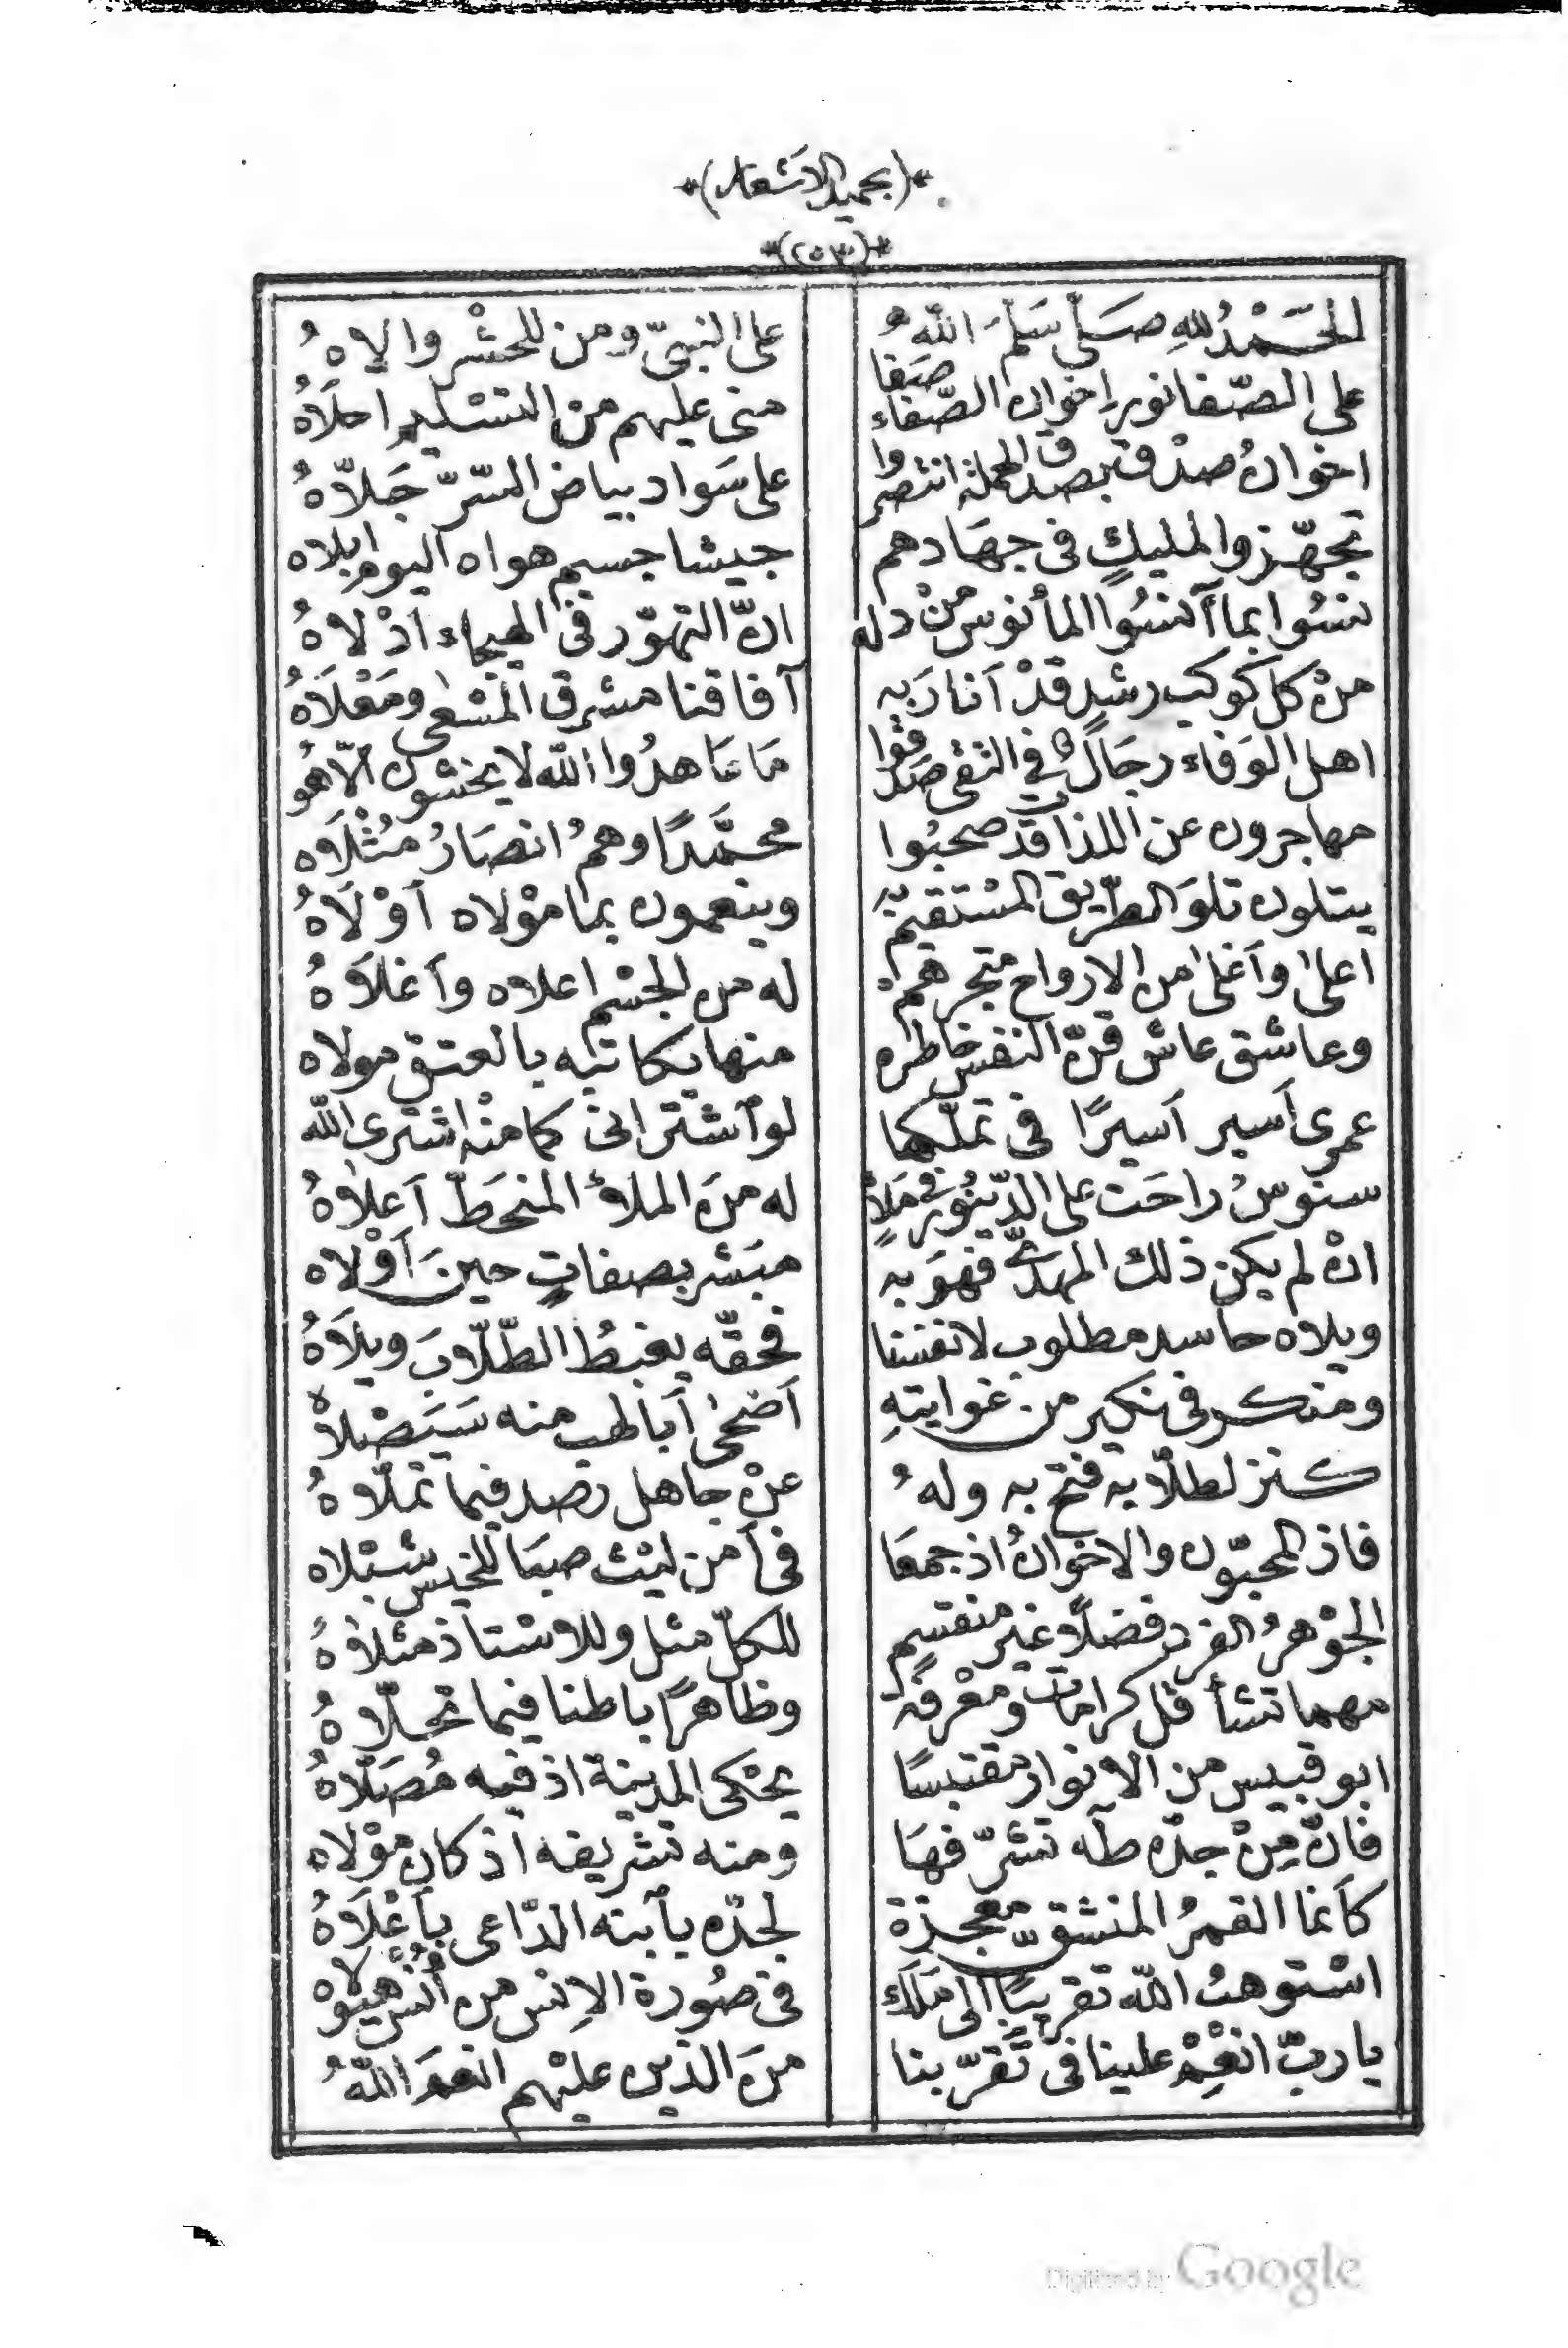 *(بحميد الاشعار)*
*(٢٥٣)*
الحَمْدُ للهِ صَلّى سَلَّمَ اللهُ على النبىّ ومن للحشْر والاهُ
على الصّفا نور اخوان الصّفاء صَفا منى عليهم من التسليم احلاَهُ
اخوانُ صدْق بصدق الحملة انتصروا على سَواد بياض السّرّ جَلاّهُ
تجهّزوا لمليكٍ فى جهَادهم جيشا جسيم هواه اليوم ابلاه
نسُوا بما آنسُوا المأنوس منْ دله انّ التهوّر فى الهيجاء اذْلاهُ
منْ كل كَوكب رشدٍ قدْ اَنارَ به آفاقنا مشرق المسْعى ومَعْلاَهُ
اهل الوَفاء رجَالٌ فى التقى صَدَقُوا مَا عَاهدُوا الله لا يخشون الاّ هُو
مهاجرون عن اللذات قد صحبُوا محمَّدًا وهمُ انصَارُ مُثْلَاه
يتلون تلوَ الطّريق المسْتقيم به وينعمون بما موْلاه اَوْلاَهُ
اعلىٰ واَغلىٰ من الارواح متجرهم له من الجسْم اعلاه واَغلاَهُ
وعاشق عاش قرّة النفس خاطره منها يكاتبه بالعتق مولاه
عمرى اَسير اَسيرًا فى تملّكها لو ٱشترانى كما منْه اشترى الله
سنوسُ راحَت على الدّينُورِ فى مَلاٍ له منَ الملأ المنحَطّ اَعلاهُ
انْ لم يكن ذلك المهدىّ فهوَ به مبَشر بصفاتٍ حينَ اَوْلاه
ويلاه حاسد مطلوب لانفسنا فحقّه يغبطُ الطّلّابَ ويلاَهُ
ومنكر فى نكير من غوايتهِ اَضحىٰ اَبا لهب منه سَيَصْلاهُ
كنز لطلّابه فتح به ولهُ عنْ جاهل رصد فيما تملّاهُ
فاز المحبّون والاخوانُ اذ جمعَا فى اَمن ليْث صبَا للخيس شبْلاه
الجوْهرُ الفرد فضلاً غيرُ منقسِمٍ للكلّ مثل وللاسْتاذ مثلاهُ
مهما تشأ قل كراماتٍ ومعْرفة وظاهرًا باطنا فيما تحلّاهُ
ابو قبيس من الانوار مقتبسًا يحْكى المدينة اذ فيه مُصَلّاهُ
فانّ مِنْ جدّه طٰه تشرّفهَا ومنه تشريفه اذ كان موْلاه
كاَنما القمرُ المنشقّ معجزة لجدّه يأبته الدّاعى باَعْلاَهُ
اسْتوهبُ الله تقريبًا الى مَلَك فى صُورة الإنس من اُنس هيُوْلاه
يا ربّ انعِمْ علينا فى تَقرّبنا منَ الذين عليْهم انعمَ اللهُ
Digitized by Google